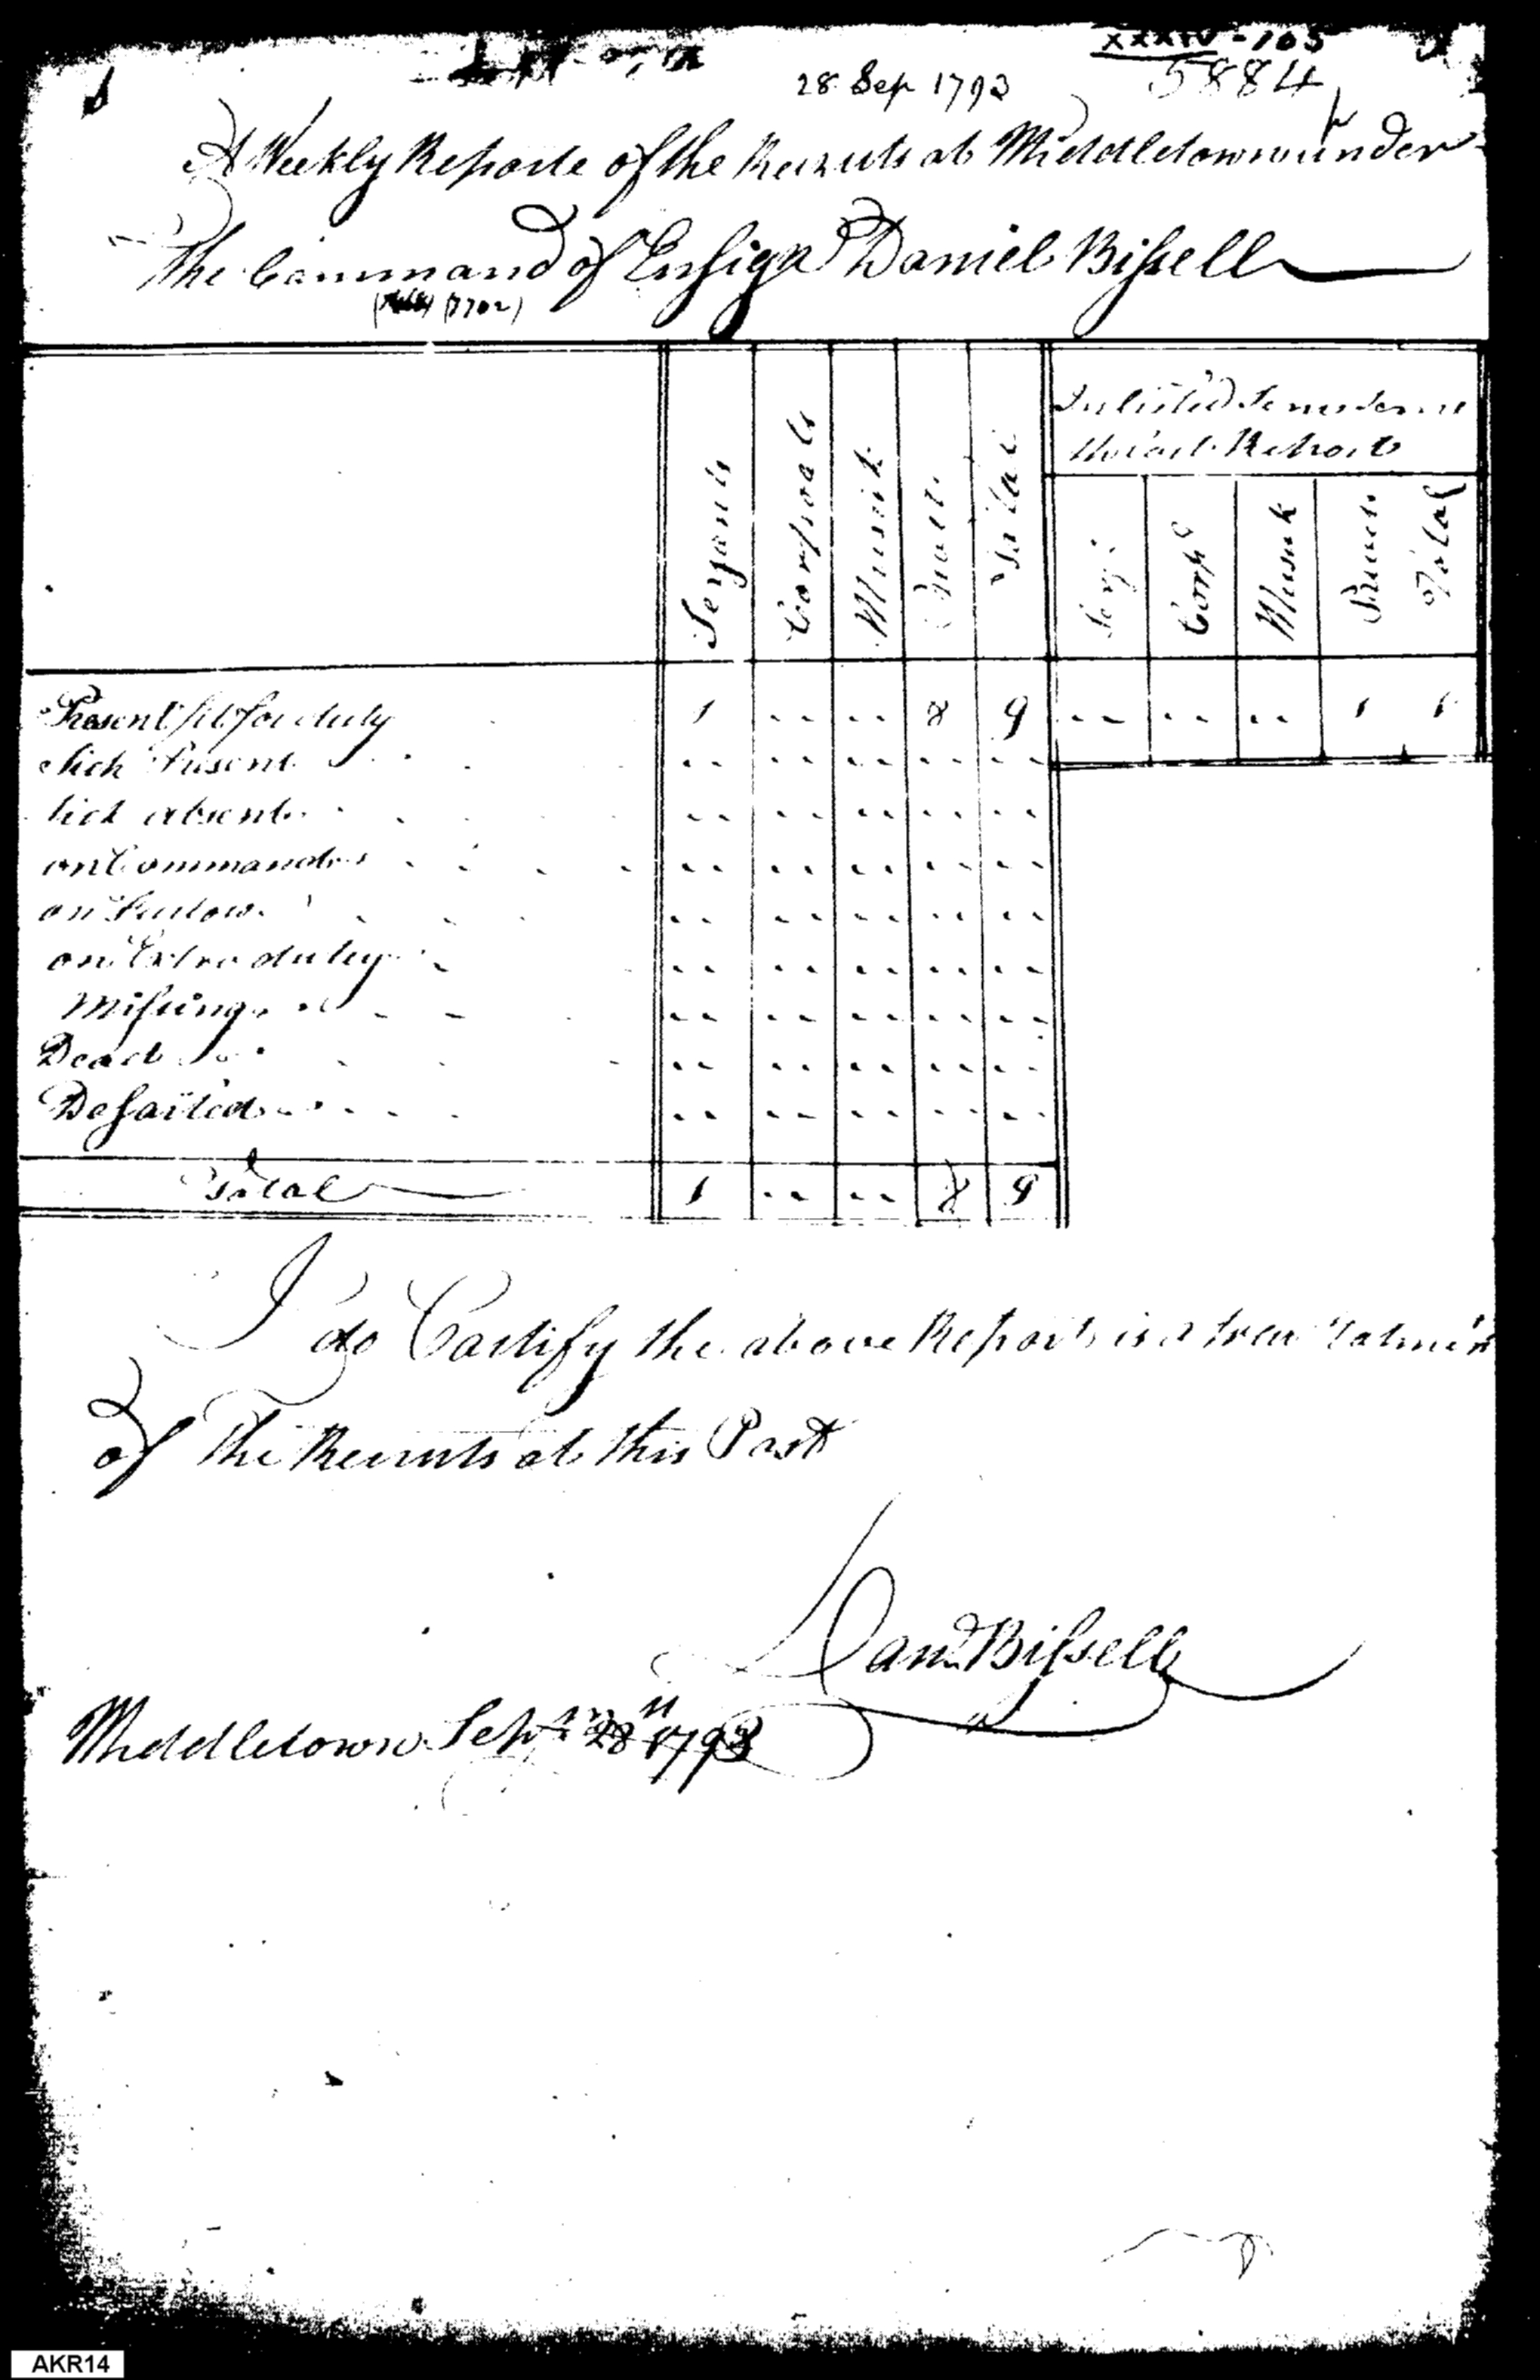 XXXIV-105
28 Sep 1793 5884
A Weekly Reporte of the Recruits at Middletown under
The Command of Ensign Daniel Bissell
Serjants Corporals Musick Privates Total Inlisted Since
the last Report
Serj. Corpl Musick Privets Total
Present fit for duty 1 .. .. 8 9 .. .. .. 1 1
Sick Present .. .. .. .. ..
Sick absent .. .. .. .. ..
on Command .. .. .. .. ..
on Furlow .. .. .. .. ..
on Extra duty .. .. .. .. ..
Missing .. .. .. .. ..
Dead .. .. .. .. ..
Desarted .. .. .. .. ..
Total 1 .. .. 8 9
I do Cartify the above Report is a true
of the Recruts at this Post
Danl Bissell
Middletown Sept 28 1793
AKR14